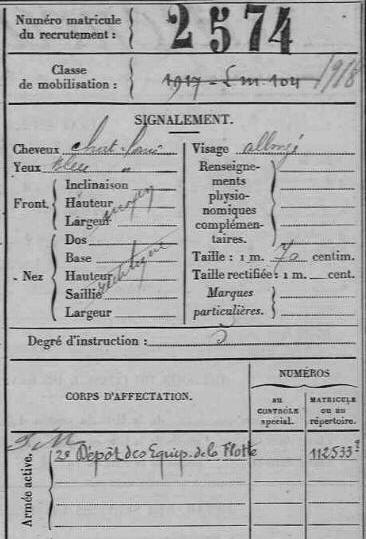 Numéro matricule
du recrutement : 2574
Classe
de mobilisation : 1917 1918
SIGNALEMENT.
Cheveux Visage allongé
Yeux bleu Renseigne-
Inclinaison ments
Front. Hauteur moyen physio-
Largeur nomiques
Dos complémen-
Base taires.
Nez Hauteur Taille : 1 m. 70 centim.
Saillie Taille rectifiée : 1 m. cent.
Largeur Marques
particulières.
Degré d'instruction : 3
CORPS D'AFFECTATION. NUMÉROS
AU CONTRÔLE spécial. MATRICULE ou au répertoire.
Armée active.
2e Dépôt des Equip. de la Flotte 112533